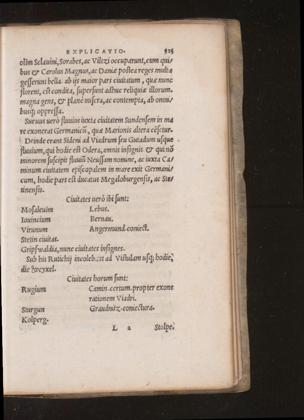 EXPLICATIO. 525
olim Sclauini, Sorabes, ac Vilczi occuparunt, cum qui
bus & Carolus Magnus, ac Daniæ postea reges multa
gesserunt bella. ab ijs maior pars ciuitatum, quæ nunc
florent, est condita, supersunt adhuc reliquiæ illorum.
magna gens, & planè misera, ac contempta, ab omni
busq; oppressa.
Sueuus uerò fluuius iuxta ciuitatem Sundensem in ma
re exonerat Germanicũ, quæ Marionis altera cẽsetur.
Deinde erant Sideni ad Viadrum seu Guttadum usque
fluuium, qui hodie est Odera, omnis insignis & qui nõ
minorem suscipit fluuiũ Neussam nomine, ac iuxta Ca
minum ciuitatem episcopalem in mare exit Germani
cum, hodie pars est ducatus Megaloburgensis, ac Ste
tinensis.
Ciuitates uerò ibi sunt:
Mosaleuim Lebus.
Iouincium Bernau.
Virunum Angermund-coniect.
Stetin ciuitat.
Gripswaldia, nunc ciuitates insignes.
Sub his Rutichij incoleb. et ad Vistulam usq; hodie,
die
Ciuitates horum sunt:
Rugium Camin certum. propter exone
rationem Viadri.
Sturgun Graudnitz-coniectura.
Kolperg.
L 2 Stolpe.